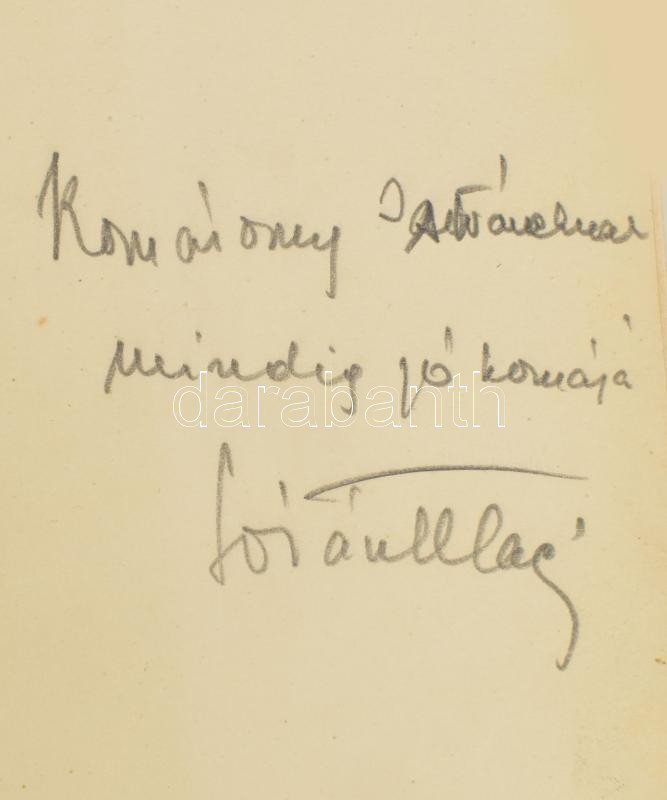 Komáromy Istvánnak
mindig jó komája
darabanth